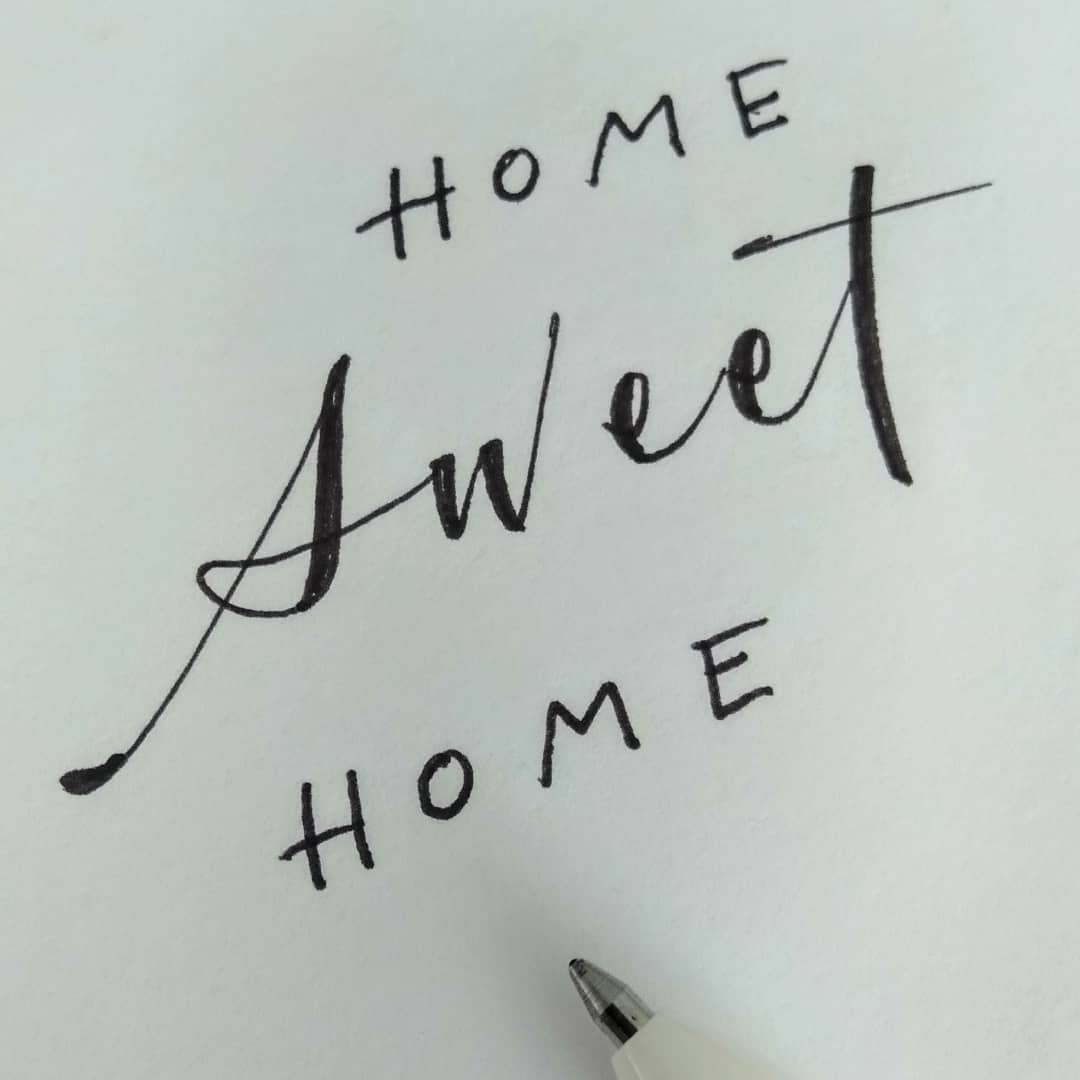 HOME
Sweet
HOME